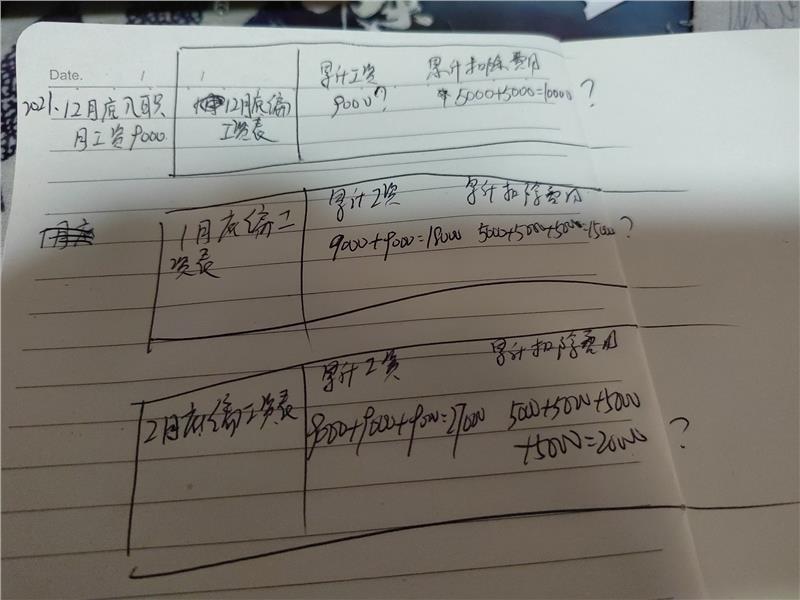 Date. / /
2021.12月底入职
月工资9000
12月底编
工资表
累计工资
9000?
累计扣除费用
5000+5000=10000?
1月底编工
资表
累计工资
9000+9000=18000
累计扣除费用
5000+5000+5000=15000?
2月底编工资表
累计工资
9000+9000+9000=27000
累计扣除费用
5000+5000+5000
+5000=20000?